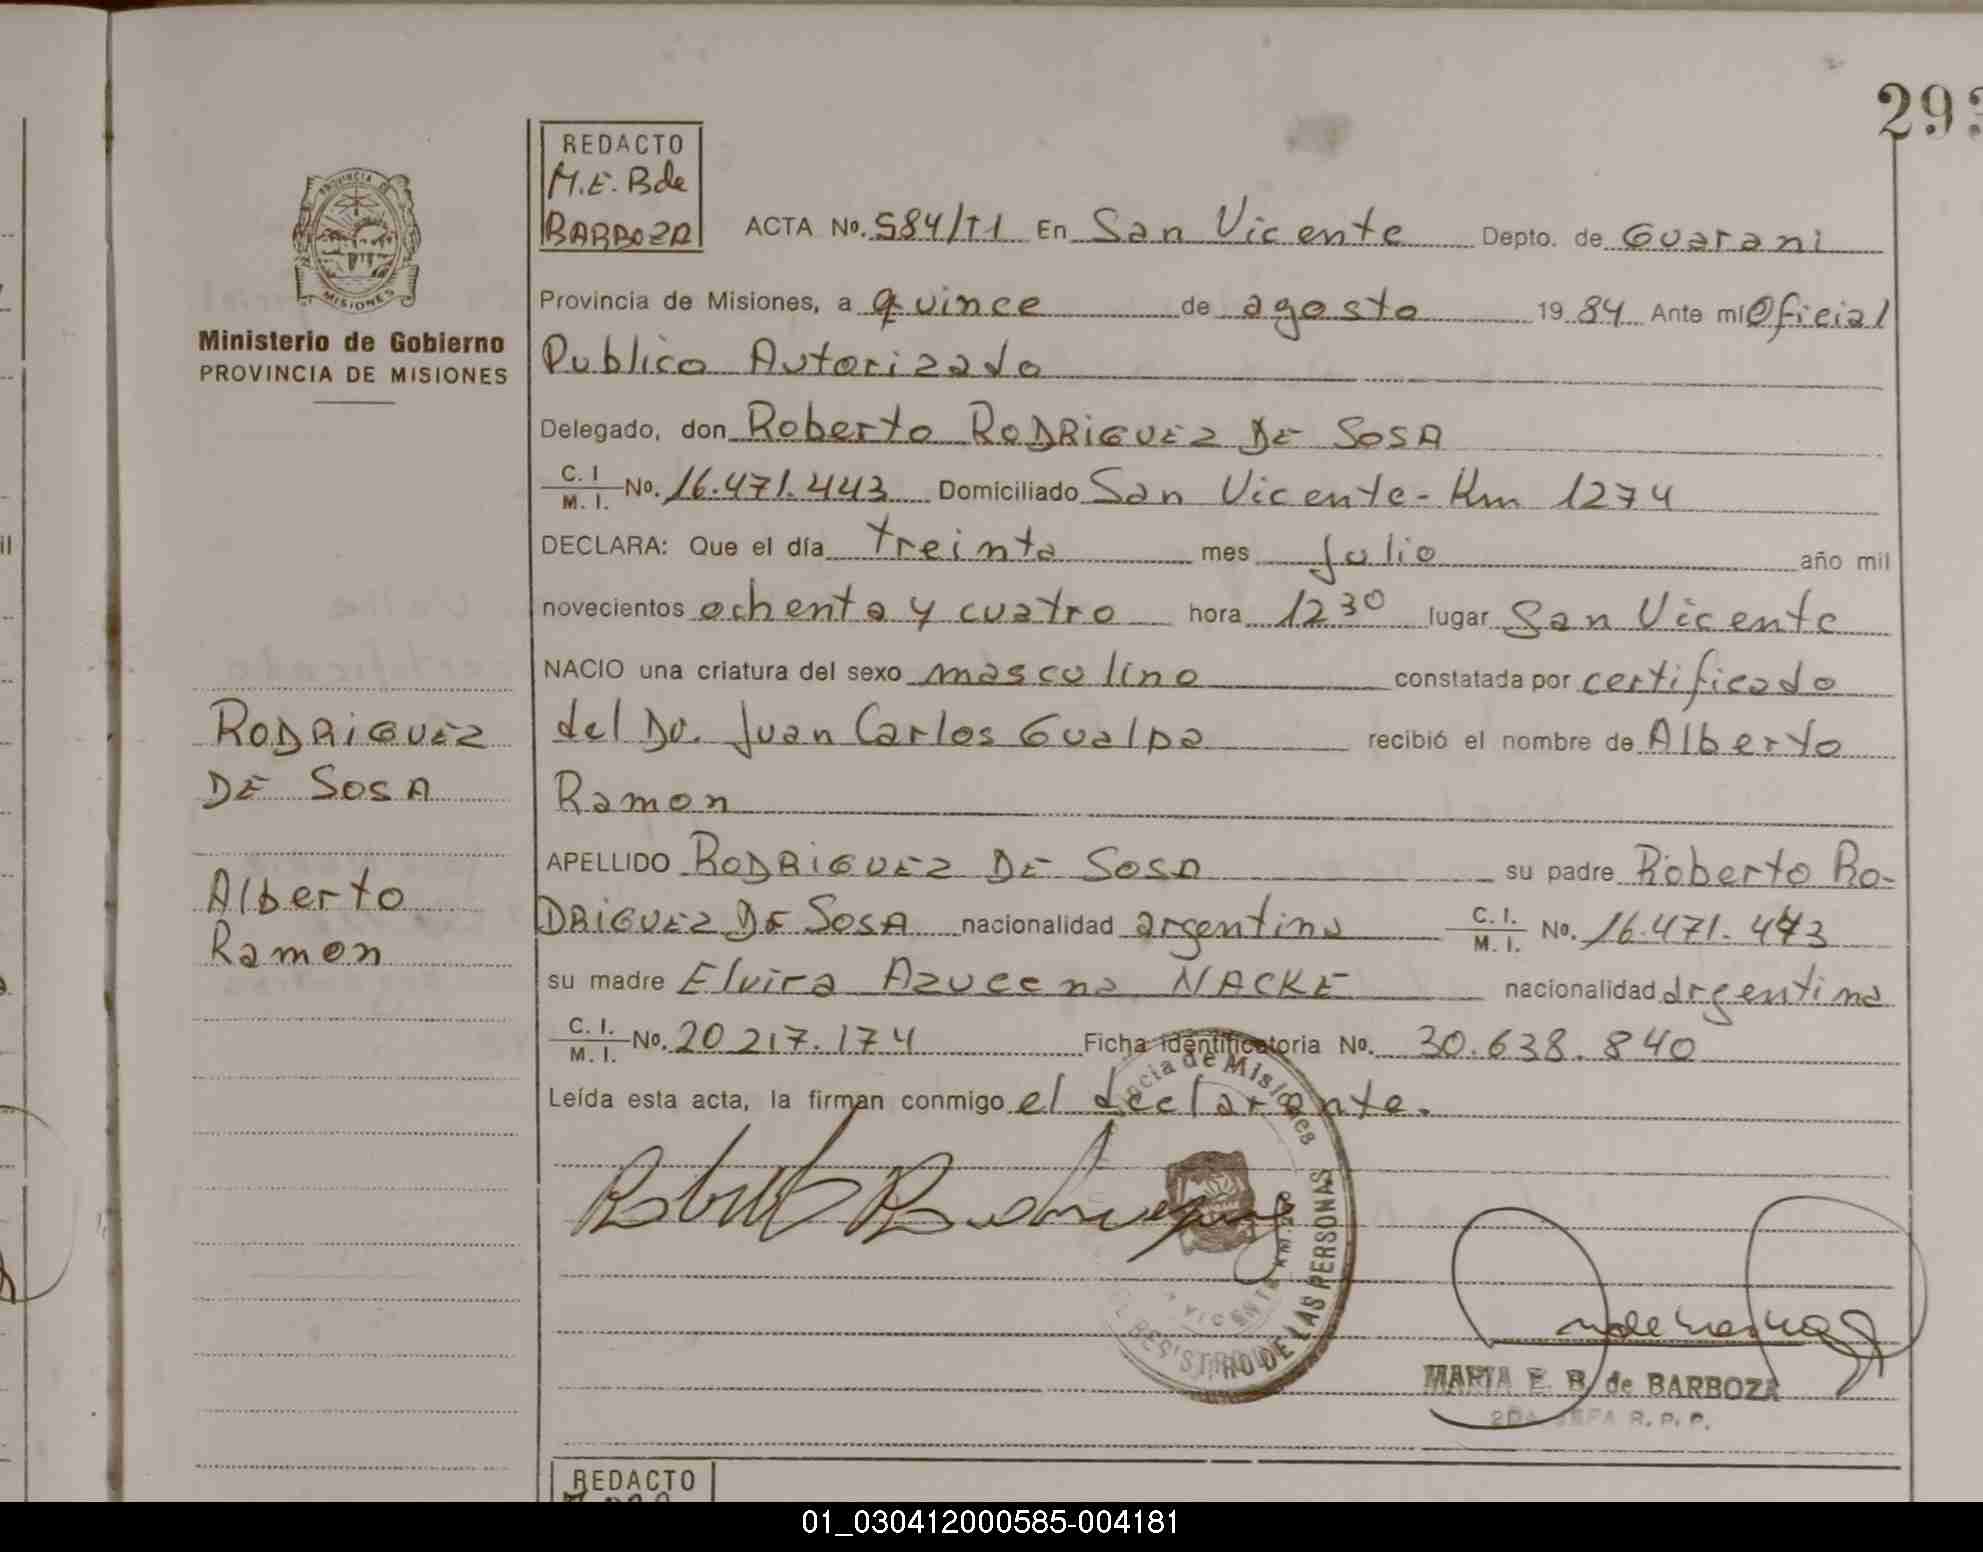 293
REDACTO
M.E. B de
BARBOZA
PROVINCIA DE
MISIONES
Ministerio de Gobierno
PROVINCIA DE MISIONES
ACTA No. 584/T1 En San Vicente Depto. de Guarani
Provincia de Misiones, a quince de agosto 19 84 Ante mi Oficial
Publico Autorizado
Delegado, don Roberto RODRIGUEZ DE SOSA
C. I. / M. I. No. 16.471.443 Domiciliado San Vicente - Km 1274
DECLARA: Que el día treinta mes Julio año mil
novecientos ochenta y cuatro hora 12 30 lugar San Vicente
NACIO una criatura del sexo masculino constatada por certificado
del Dr. Juan Carlos Gualpa recibió el nombre de Alberto
Ramon
APELLIDO RODRIGUEZ DE SOSA su padre Roberto RO-
DRIGUEZ DE SOSA nacionalidad argentina C. I. / M. I. No. 16.471.443
su madre Elvira Azucena NACKE nacionalidad argentina
C. I. / M. I. No. 20 217.174 Ficha identificatoria No. 30.638.840
Leída esta acta, la firman conmigo el declarante.
RODRIGUEZ
DE SOSA
Alberto
Ramon
Roberto Rodriguez
ncia de Misiones
REGISTRO DE LAS PERSONAS
VICENTE KM.
MARIA E. B. de BARBOZA
2DA JEFA R. P. P.
REDACTO
01_030412000585-004181